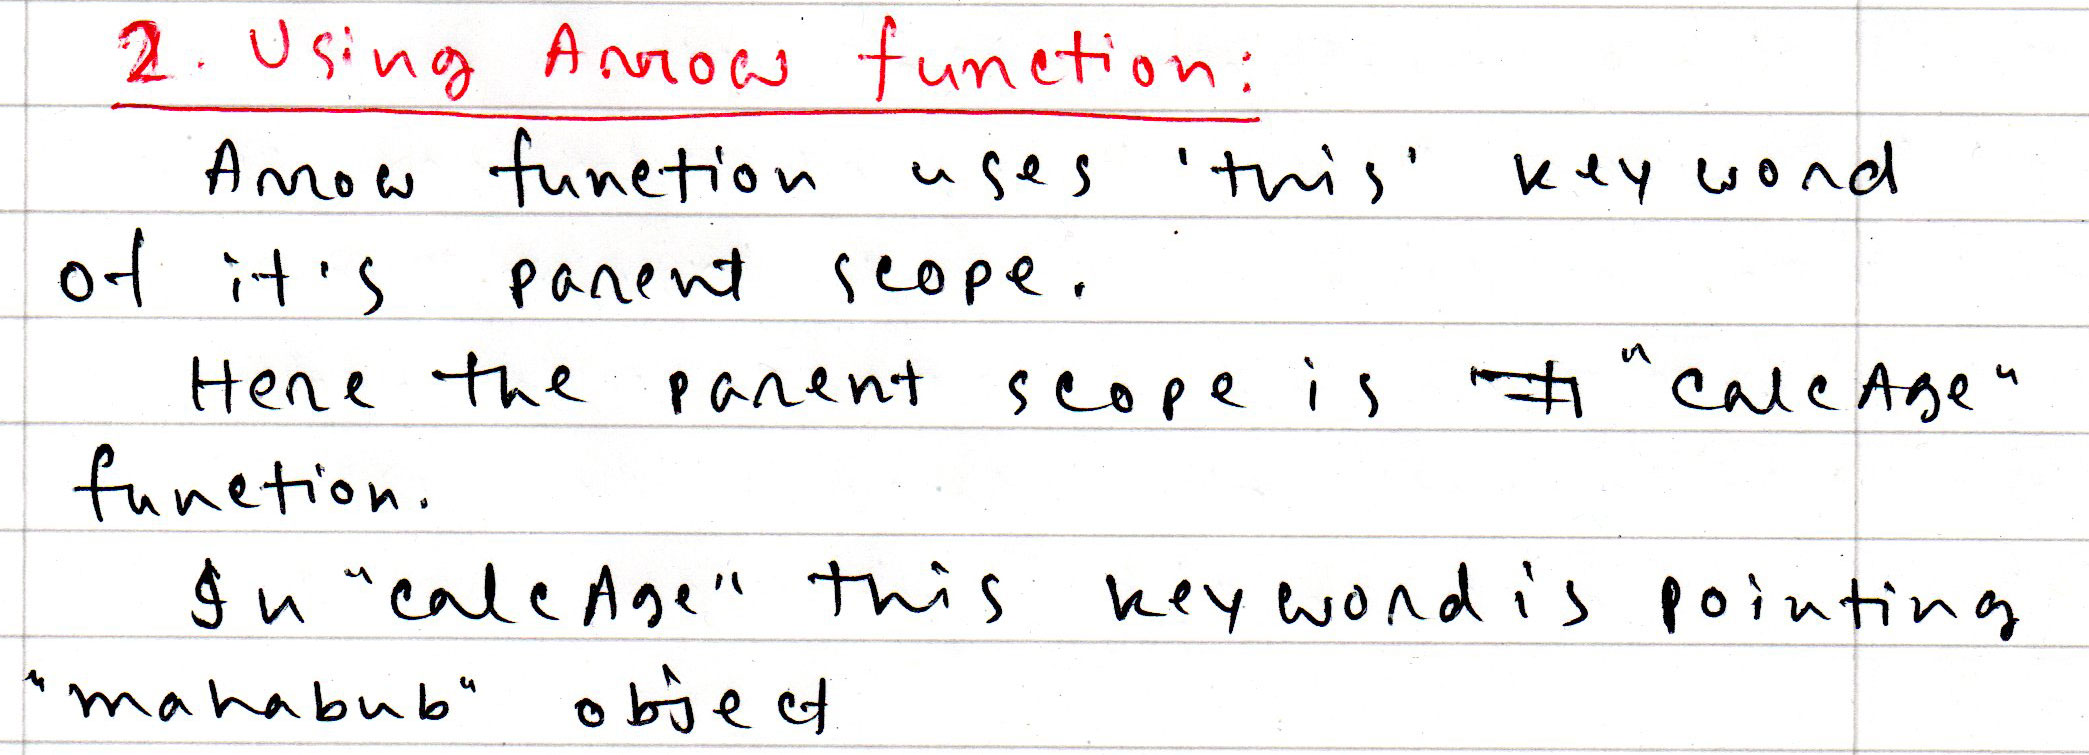 2. Using Arrow function:
Arrow function uses 'this' keyword
of it's parent scope.
Here the parent scope is "calcAge"
function.
In "calcAge" this keyword is pointing
"mahabub" object